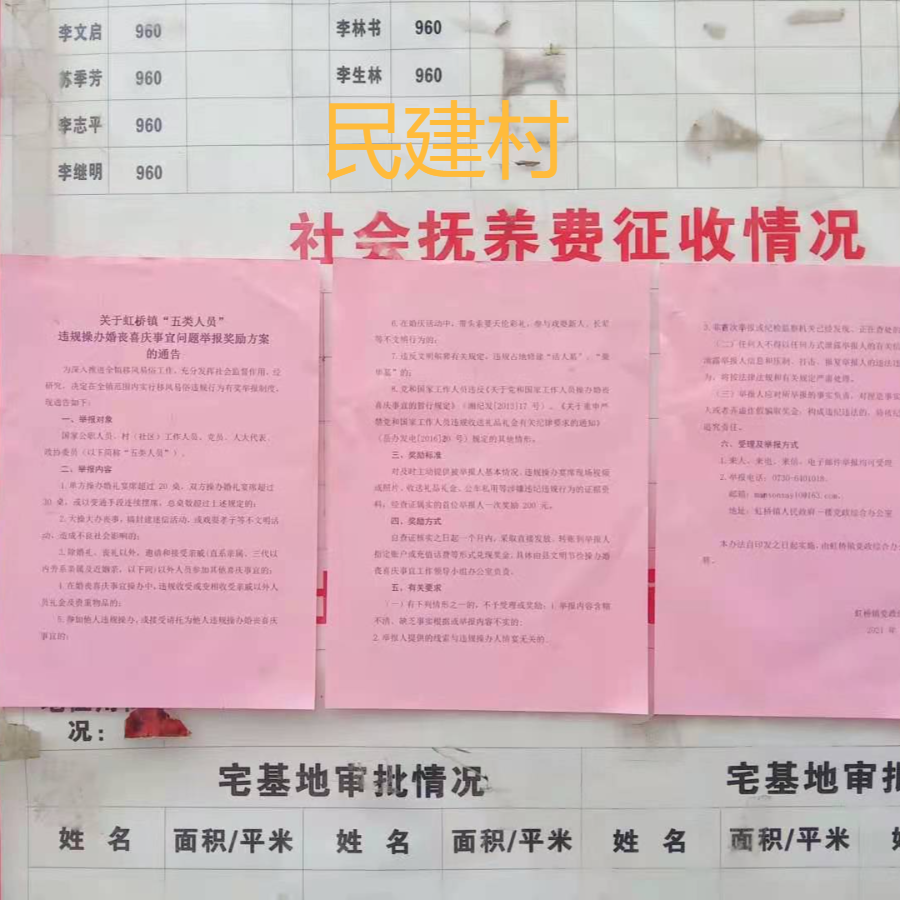 李文启 960 李林书 960
苏季芳 960 李生林 960
李志平 960
李继明 960
民建村
社会抚养费征收情况
关于虹桥镇“五类人员”
违规操办婚丧喜庆事宜问题举报奖励方案
的通告
为深入推进全镇移风易俗工作，充分发挥社会监督作用，经
研究，决定在全镇范围内实行移风易俗违规行为有奖举报制度，
现通告如下：
一、举报对象
国家公职人员、村（社区）工作人员、党员、人大代表、
政协委员（以下简称“五类人员”）。
二、举报内容
1.单方操办婚礼宴席超过 20 桌，双方操办婚礼宴席超过
30 桌，或以变通手段连续摆席，总桌数超过上述规定的；
2.大操大办丧事，搞封建迷信活动，或戏要孝子等不文明活
动，造成不良社会影响的；
3.除婚礼、丧礼以外，邀请和接受亲戚(直系亲属、三代以
内旁系亲属及近姻亲，以下同)以外人员参加其他喜庆事宜的；
4.在婚丧喜庆事宜操办中，违规收受或变相收受亲戚以外人
员礼金及贵重物品的；
5.授意他人违规操办，或接受请托为他人违规操办婚丧喜庆
事宜的；
6.在婚庆活动中，带头索要天价彩礼，参与戏要新人、长辈
等不文明行为的；
7.违反文明殡葬有关规定，违规占地修建“活人墓”、“豪
华墓”的；
8.党和国家工作人员违反《关于党和国家工作人员操办婚丧
喜庆事宜的暂行规定》（湘纪发[2013]17 号）、《关于重申严
禁党和国家工作人员违规收送礼品礼金有关纪律要求的通知》
（县办发电[2016]20 号）规定的其他情形。
三、奖励标准
对及时主动提供被举报人基本情况、违规操办宴席现场视频
或照片、收送礼品礼金、公车私用等涉嫌违纪违规行为的证据资
料，经查证属实的首位举报人一次奖励 200 元。
四、奖励方式
自查证核实之日起一个月内，采取直接发放、转账到举报人
指定账户或充值话费等形式兑现奖金。具体由县文明节俭操办婚
丧喜庆事宜工作领导小组办公室负责。
五、有关要求
（一）有下列情形之一的，不予受理或奖励：1.举报内容含糊
不清、缺乏事实根据或举报内容不实的；
2.举报人提供的线索与违规操办人情宴无关的。
3.非首次举报或纪检监察机关已经发现、正在查处的
（二）任何人不得以任何方式泄露举报人的有关信
泄露举报人信息和压制、打击、报复举报人的违法违
为，将按法律法规和有关规定严肃处理。
（三）举报人应对所举报的事实负责，对捏造事实
人或者弄虚作假骗取奖金，构成违纪违法的，
追究责任。
六、受理及举报方式
1.来人、来电、来信、电子邮件举报均可受理
2.举报电话：0730-6401018.
邮箱：
地址：虹桥镇人民政府一楼党政综合办公室
本办法自印发之日起实施，由虹桥镇党政综合办公
虹桥镇党政
2021 年
况：
宅基地审批情况 宅基地审批
姓 名 面积/平米 姓 名 面积/平米 姓 名 面积/平米 姓